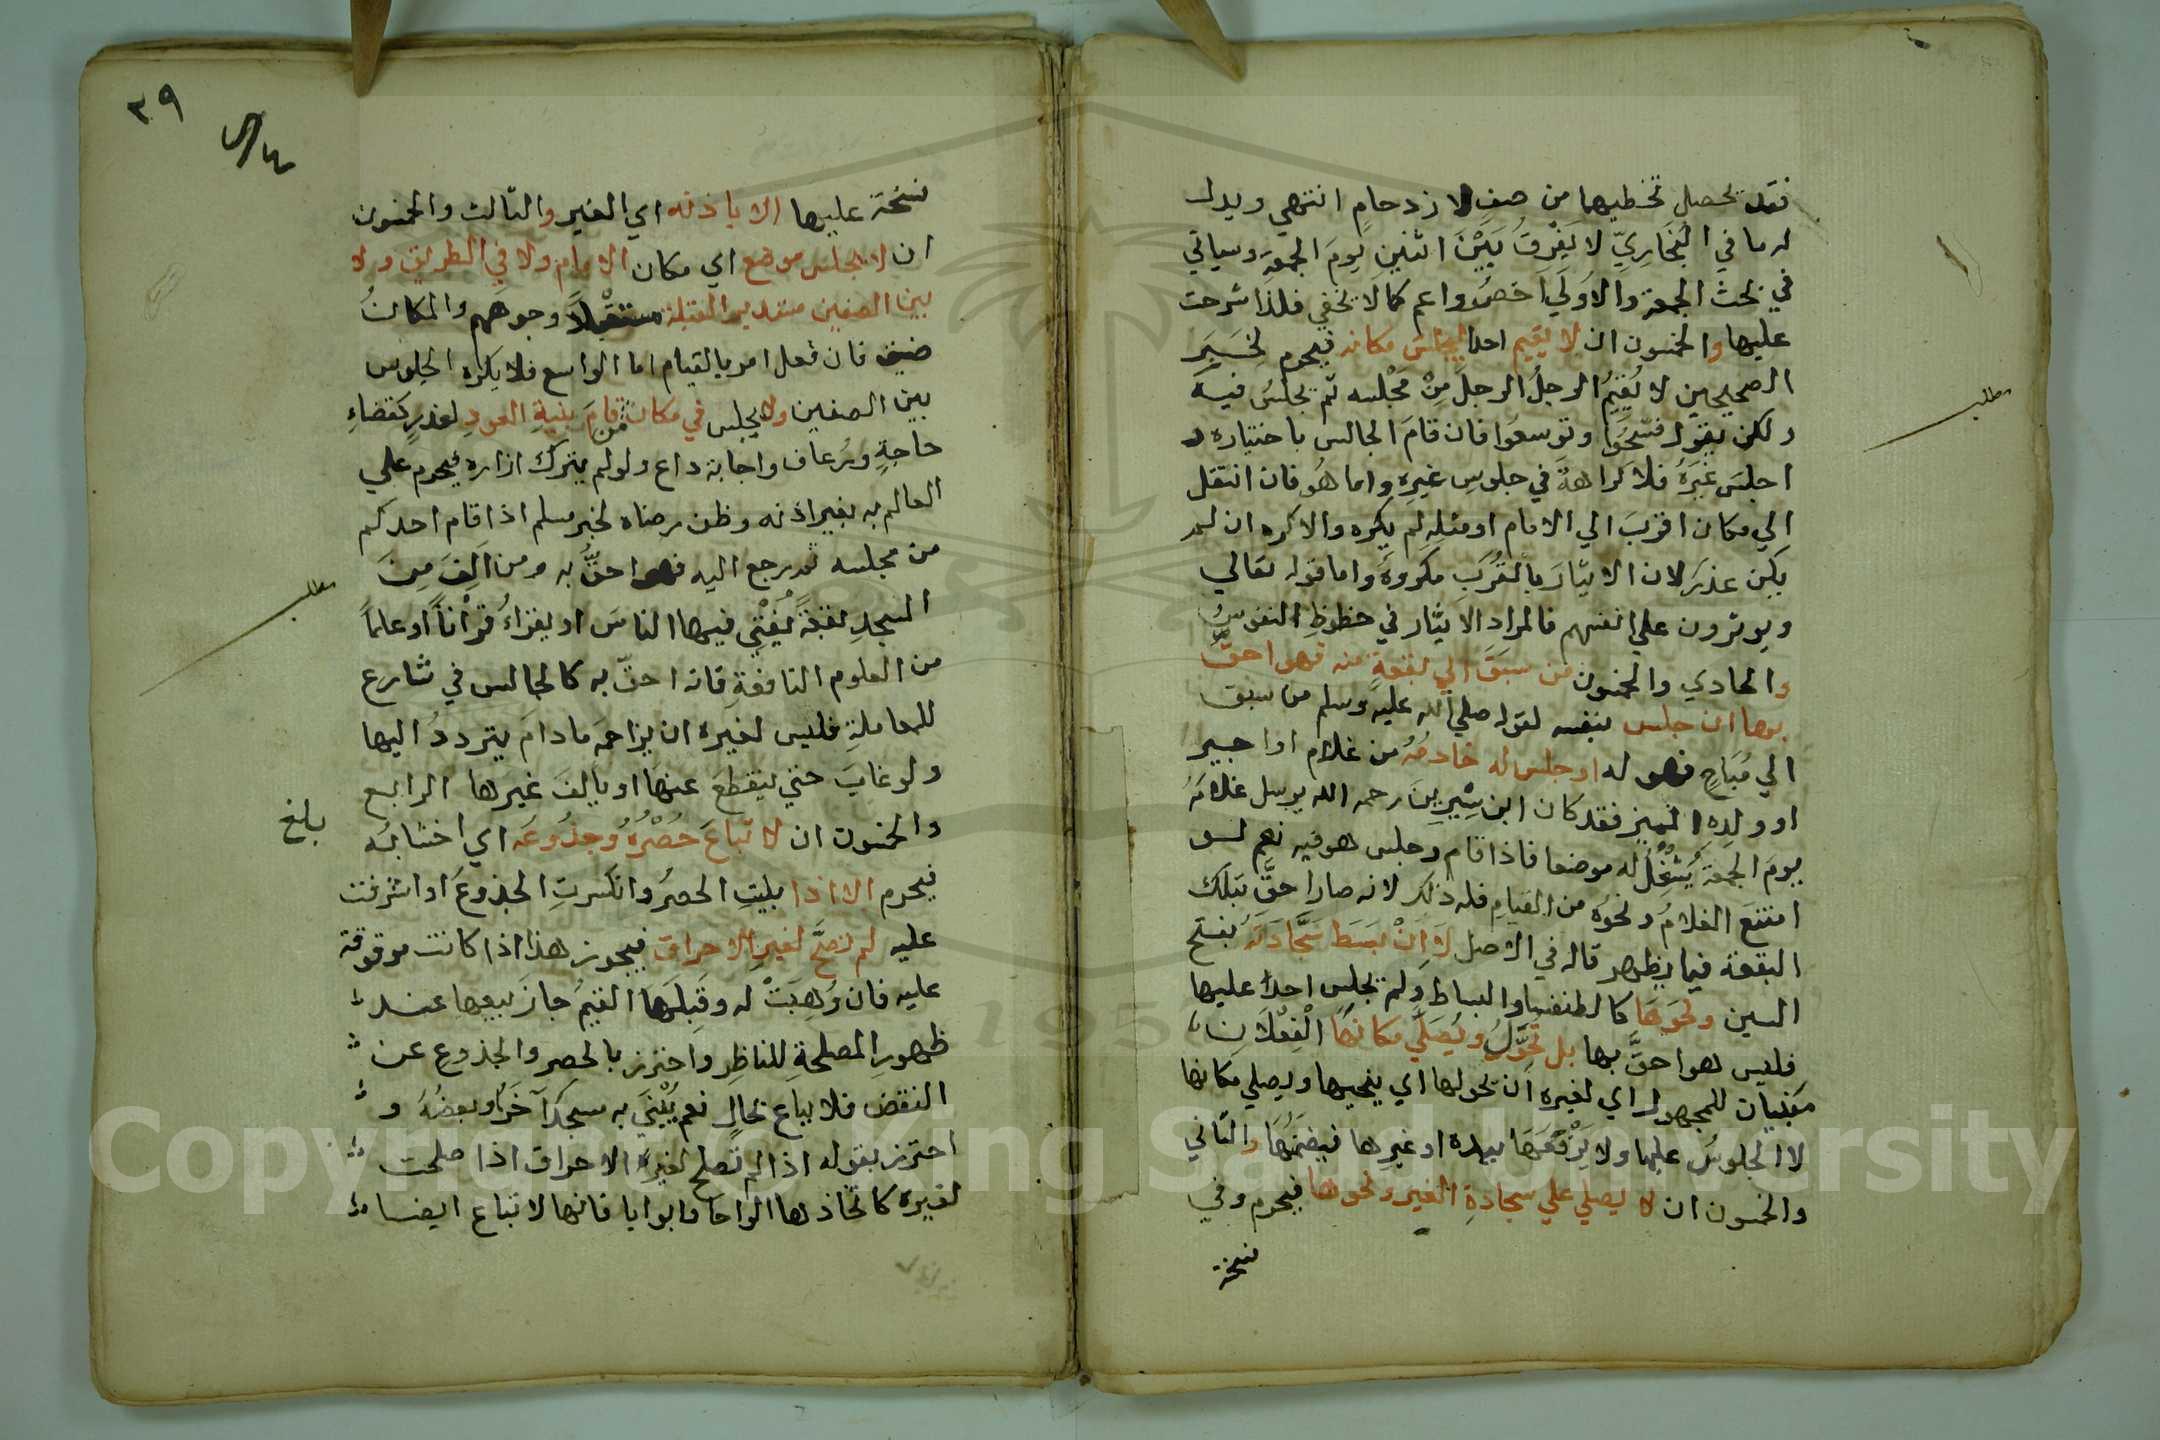 فقد يحصل تخطيهما من صف لازدحام انتهي ويدل
له ما في البُخَارِيّ لا يَفْرِقُ بَيْنَ اثنين يومَ الجمعة وسياتي
في بحث الجمعة والاوَلَي اخصُ واعم كما لا يخفي فلذا شرحت
عليها والخمسون ان لا يقيم احدا ليجلس مكانه فيحرم لِخَبَر
الصحيحين لا يُقيمُ الرجلُ الرجلَ مِنْ مَجْلسه ثم يجلسُ فيه
ولكن يقول فسّحوا وتوسعُوا فان قامَ الجالس باختياره و
اجلسَ غيَرهُ فلا كراهةَ في جلوسِ غيرِهِ واما هُو فان انتقل
الي مكان اقربَ الي الامام او مثلهِ لم يكره والا كره ان لم
يكن عذرٌ لان الايثارَ بالقُرَبِ مكروهٌ واما قوله تعالي
ويوثرون علي انفسهم فالمراد الايثار في حظوظِ النفوسُ
والحادي والخمسون من سبَقَ الي بقعةٍ منه فهو احقُّ
بها ان جلس بنفسه لقوله صلي الله عليه وسلم من سبق
الي مُبَاحٍ فهو له او جلس له خادمُهُ من غلام او اجير
او ولدِهِ المميز فقد كان ابن سِيْرِينَ رحمه الله يرسل غلامَهُ
يومَ الجمعة يُشْغِلُ له موضعا فاذا قام وجلس هو فيه نعم لو
امتنعَ الغلامُ ونحوُه من القيامِ فله ذلك لانه صار احقَّ بتلك
البقعة فيما يظهر قاله في الاصل لاَ اِنْ بَسَطَ سَجَّادَتَهُ بفتح
السين ونحوَهَا كالطنفسا والبساط ولم يجلس احدٌ عليها
فليس هو احقَّ بها بل تُحَّولُ ويُصَلَّي مكانهَا الْفِعْلاَنِ
مبنيان للمجهول اي لغيره ان يحولها اي ينحيها ويصلي مكانها
لا الجلوسُ عليها ولا يَرْفَعَهَا بيده او غيرها فيضمنُهَا والثاني
والخمسون ان لا يصلي علي سجادةِ الغير ونحوها فيحرم وفي
نسخة
مطلب
٣٩
نسْخَة عليها الا باذنه اي الغير والثالث والخمسون
ان لا يجلس موضع اي مكان الامام ولا في الطريق ولا
بين الصفين مستدبر القبلة مستقبلاً وجوههم والمكانُ
ضيق فان فعل امر بالقيام اما الواسع فلا يكره الجلوس
بين الصفين ولا يجلس في مكان من قامَ بنيةِ العودِ لعذرٍ كقضاءِ
حاجةٍ ورُعاف واجابة داع ولو لم يترك ازاره فيحرم علي
العالم به بغير اذنه وظن رضاه لخبر مسلم اذا قام احدكم
من مجلسه ثم رجع اليه فهو احقُّ به ومن اَلِفَ مِنَ
المسجدِ بقعةً يُفْتِي فيها الناسَ او يقراءُ قرْاناً او علماً
من العلوم النافعةِ فانه احقّ به كالجالس في شارع
للمعاملةِ فليس لغيره ان يزاحمَه مادامَ يترددُ اليها
ولو غابَ حتي ينقطعَ عنها او يالفَ غيرَها الرابع
والخمسون ان لا تباعَ حُصْرُهُ وجذُوعَه اي اخشابُه
فيحرم الا اذا بليتِ الحصرُ وانكسرتِ الجذوعُ او اشرفت
عليه لم تصلَّح لغيرِ الاحراق فيجوز هذا اذا كانت موقوفة
عليه فان وُهِبَتْ له وقَبِلَهَا القيمُ جازَ بيعها عند
ظهورِ المصلحةِ للناظِر واحترز بالحصر والجذوع عن
النقض فلا يباع بحالٍ نعم يُبْنَي به مسجدٌ آخَرُ او بعضُهُ و
احترز بقوله اذا لم تصلح لغير الاحراق اذا صلحت
لغيره كاتخاذها الواحا وابوابا فانها لا تباع ايضا
مطلب
بلغ